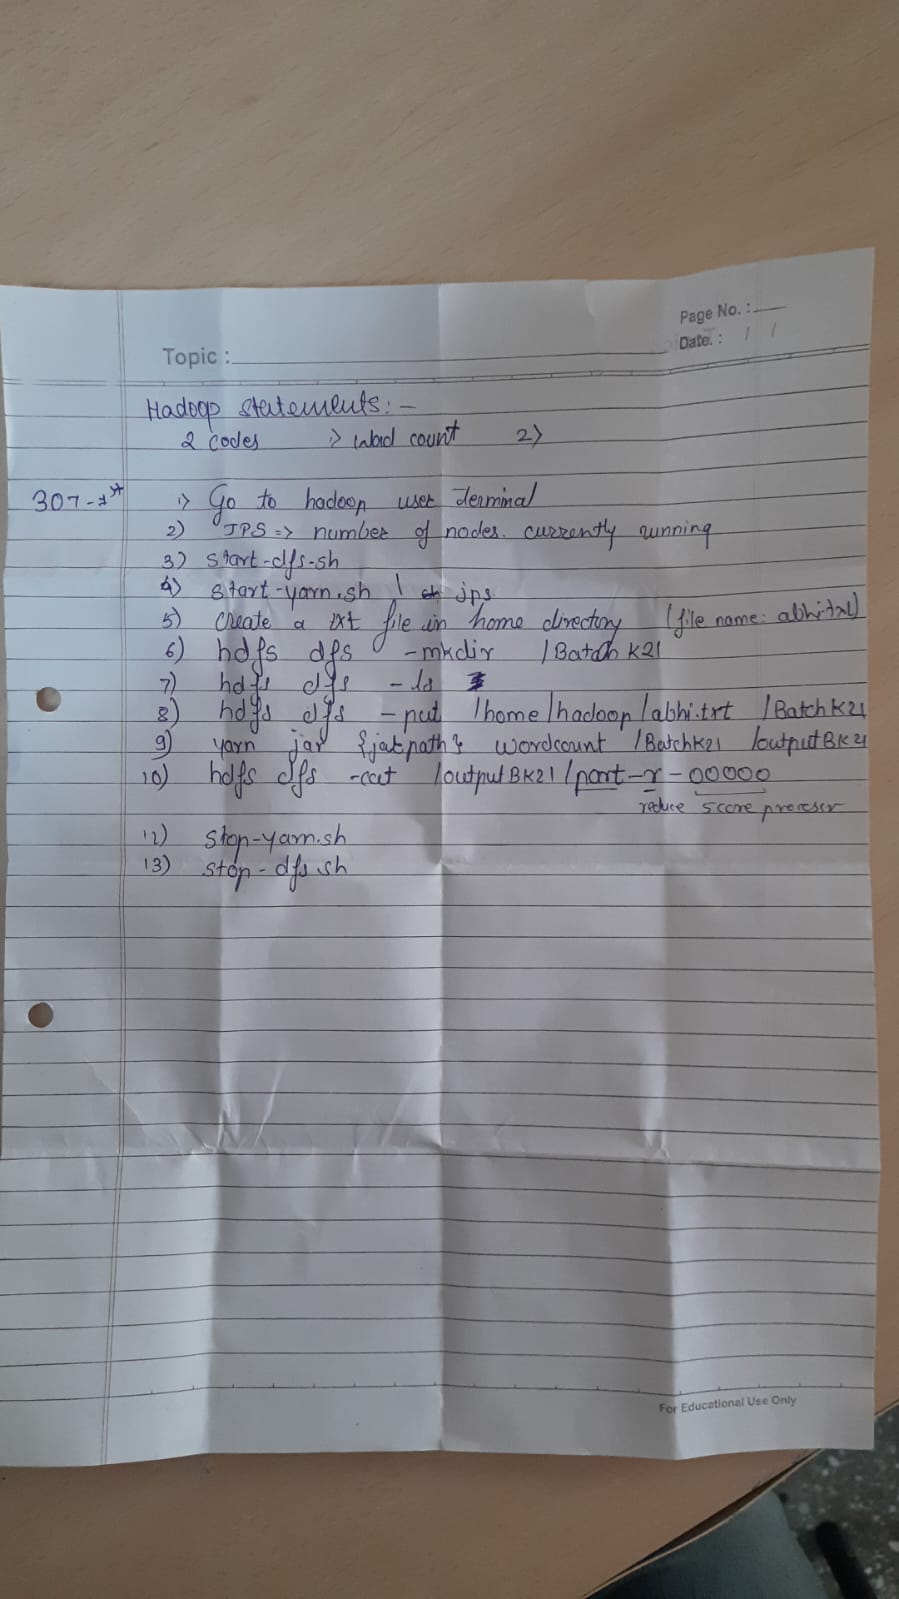 Page No. :
Date. : / /
Topic :
Hadoop statements: -
2 codes 1> Word count 2>
307-1st 1> Go to hadoop user Terminal
2) JPS => number of nodes. currently running
3) start-dfs-sh
4) start-yarn.sh | jps
5) create a txt file in home directory (file name: abhi.txt)
6) hdfs dfs -mkdir /BatchK21
7) hdfs dfs -ls
8) hdfs dfs -put /home/hadoop/abhi.txt /BatchK21
9) yarn jar {jarpath} wordcount /BatchK21 /outputBK21
10) hdfs dfs -cat /outputBK21/part-r-00000
reduce
12) stop-yarn.sh
13) stop-dfs.sh
For Educational Use Only